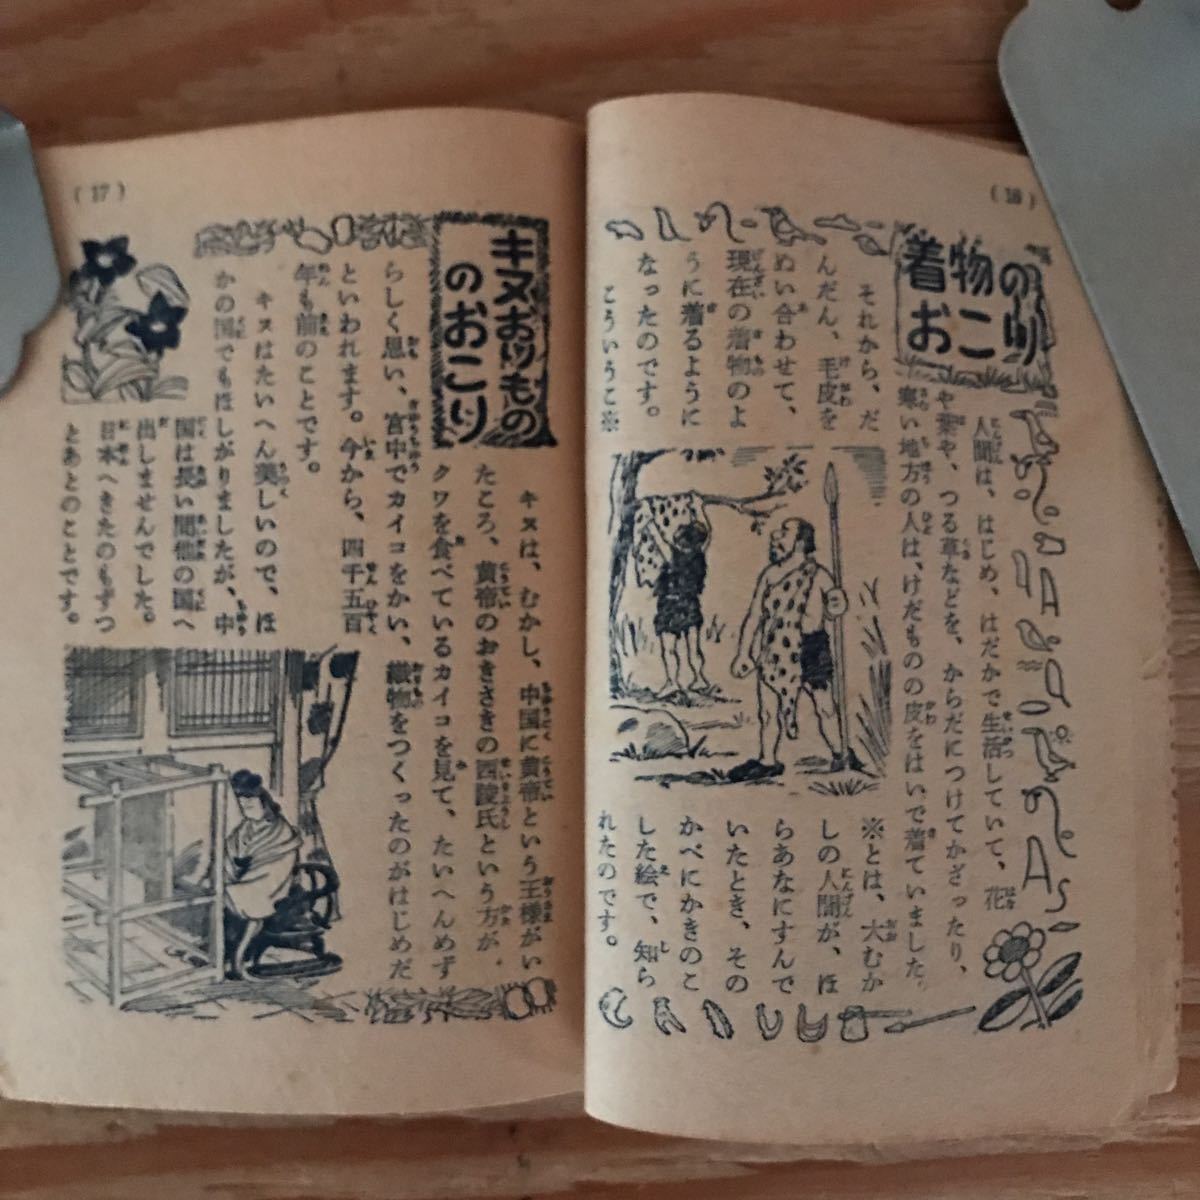 (16)
着物の
おこり
人間は、はじめ、はだかで生活していて、花
や葉や、つる草などを、からだにつけてかざったり、
寒い地方の人は、けだものの皮をはいで着ていました。
それから、だ
んだん、毛皮を
ぬい合わせて、
現在の着物のよ
うに着るように
なったのです。
こういうこ※
※とは、大むか
しの人間が、ほ
らあなにすんで
いたとき、その
かべにかきのこ
した絵で、知ら
れたのです。
(17)
キヌおりもの
のおこり
キヌは、むかし、中国に黄帝という王様がい
たころ、黄帝のおきさきの西陵氏という方が、
クワを食べているカイコを見て、たいへんめず
らしく思い、宮中でカイコをかい、織物をつくったのがはじめだ
といわれます。今から、四千五百
年も前のことです。
キヌはたいへん美しいので、ほ
かの国でもほしがりましたが、中
国は長い間他の国へ
出しませんでした。
日本へきたのもずっ
とあとのことです。